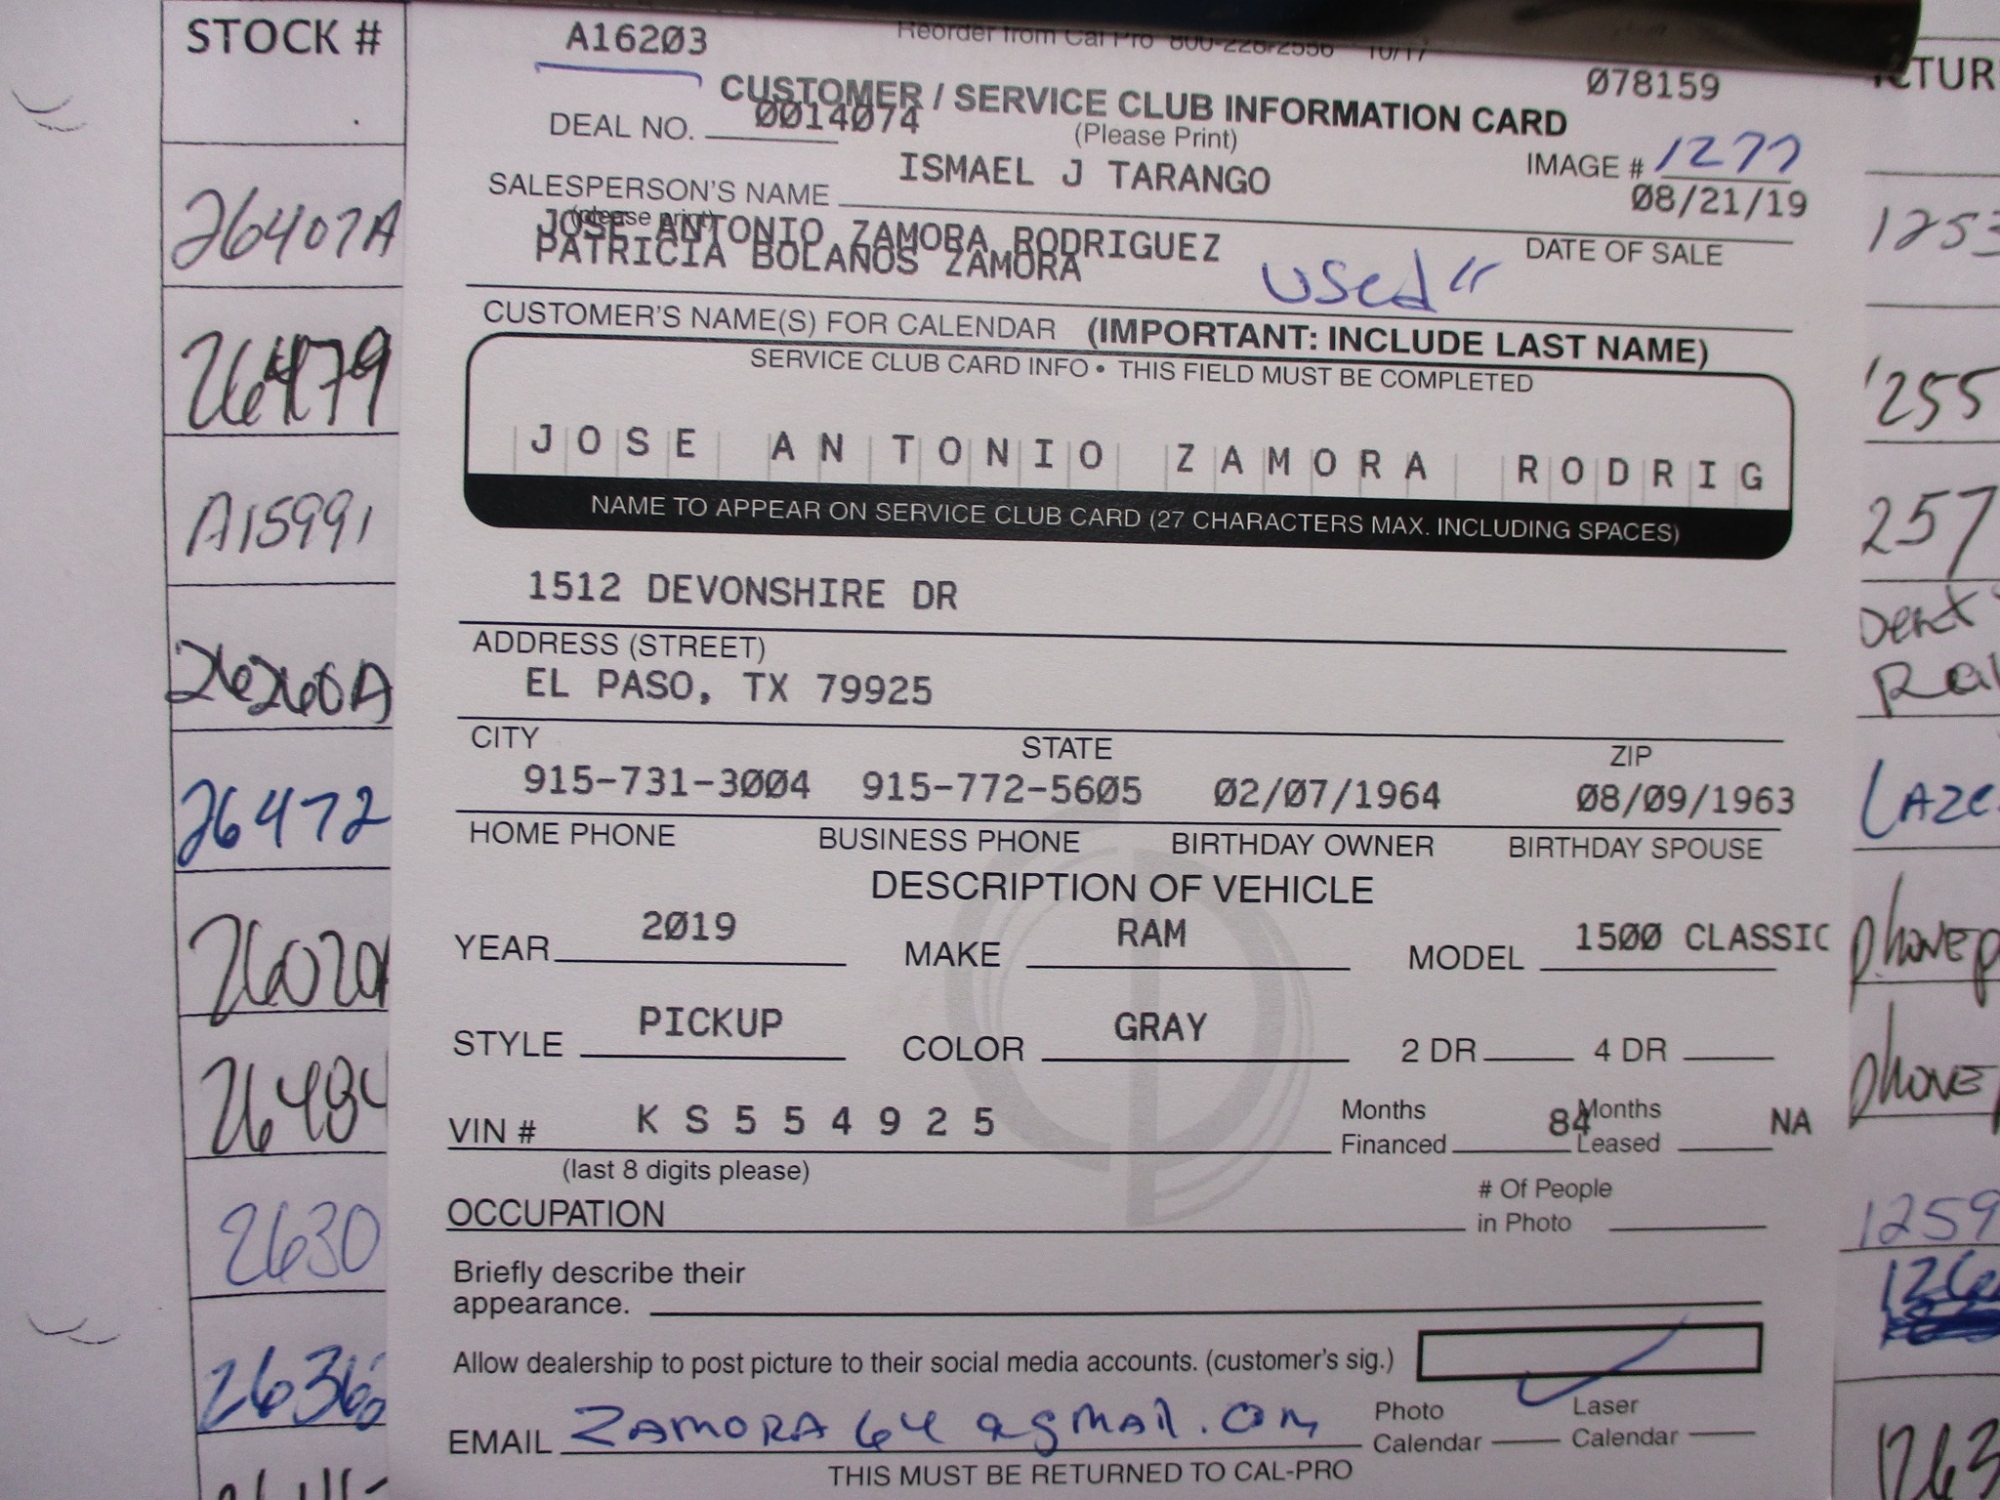 STOCK #
26407A
26479
A15991
26260A
26472
2630
A16203
Reorder from Cal Pro 800-228-2556 10/17
078159
CUSTOMER / SERVICE CLUB INFORMATION CARD
DEAL NO. 0014074
(Please Print)
IMAGE # 1277
SALESPERSON'S NAME ISMAEL J TARANGO
08/21/19
(please print)
JOSE ANTONIO ZAMORA RODRIGUEZ
PATRICIA BOLANOS ZAMORA
Used
DATE OF SALE
CUSTOMER'S NAME(S) FOR CALENDAR (IMPORTANT: INCLUDE LAST NAME)
SERVICE CLUB CARD INFO • THIS FIELD MUST BE COMPLETED
JOSE ANTONIO ZAMORA RODRIG
NAME TO APPEAR ON SERVICE CLUB CARD (27 CHARACTERS MAX. INCLUDING SPACES)
1512 DEVONSHIRE DR
ADDRESS (STREET)
EL PASO, TX 79925
CITY STATE ZIP
915-731-3004 915-772-5605 02/07/1964 08/09/1963
HOME PHONE BUSINESS PHONE BIRTHDAY OWNER BIRTHDAY SPOUSE
DESCRIPTION OF VEHICLE
YEAR 2019 MAKE RAM MODEL 1500 CLASSIC
STYLE PICKUP COLOR GRAY 2 DR 4 DR
VIN # KS554925 Months Financed 84 Months Leased NA
(last 8 digits please)
OCCUPATION # Of People in Photo
Briefly describe their
appearance.
Allow dealership to post picture to their social media accounts. (customer's sig.)
EMAIL ZAMORA64@gmail.com Photo Calendar Laser Calendar
THIS MUST BE RETURNED TO CAL-PRO
1253
1255
257
Dent
phone
1259
1263